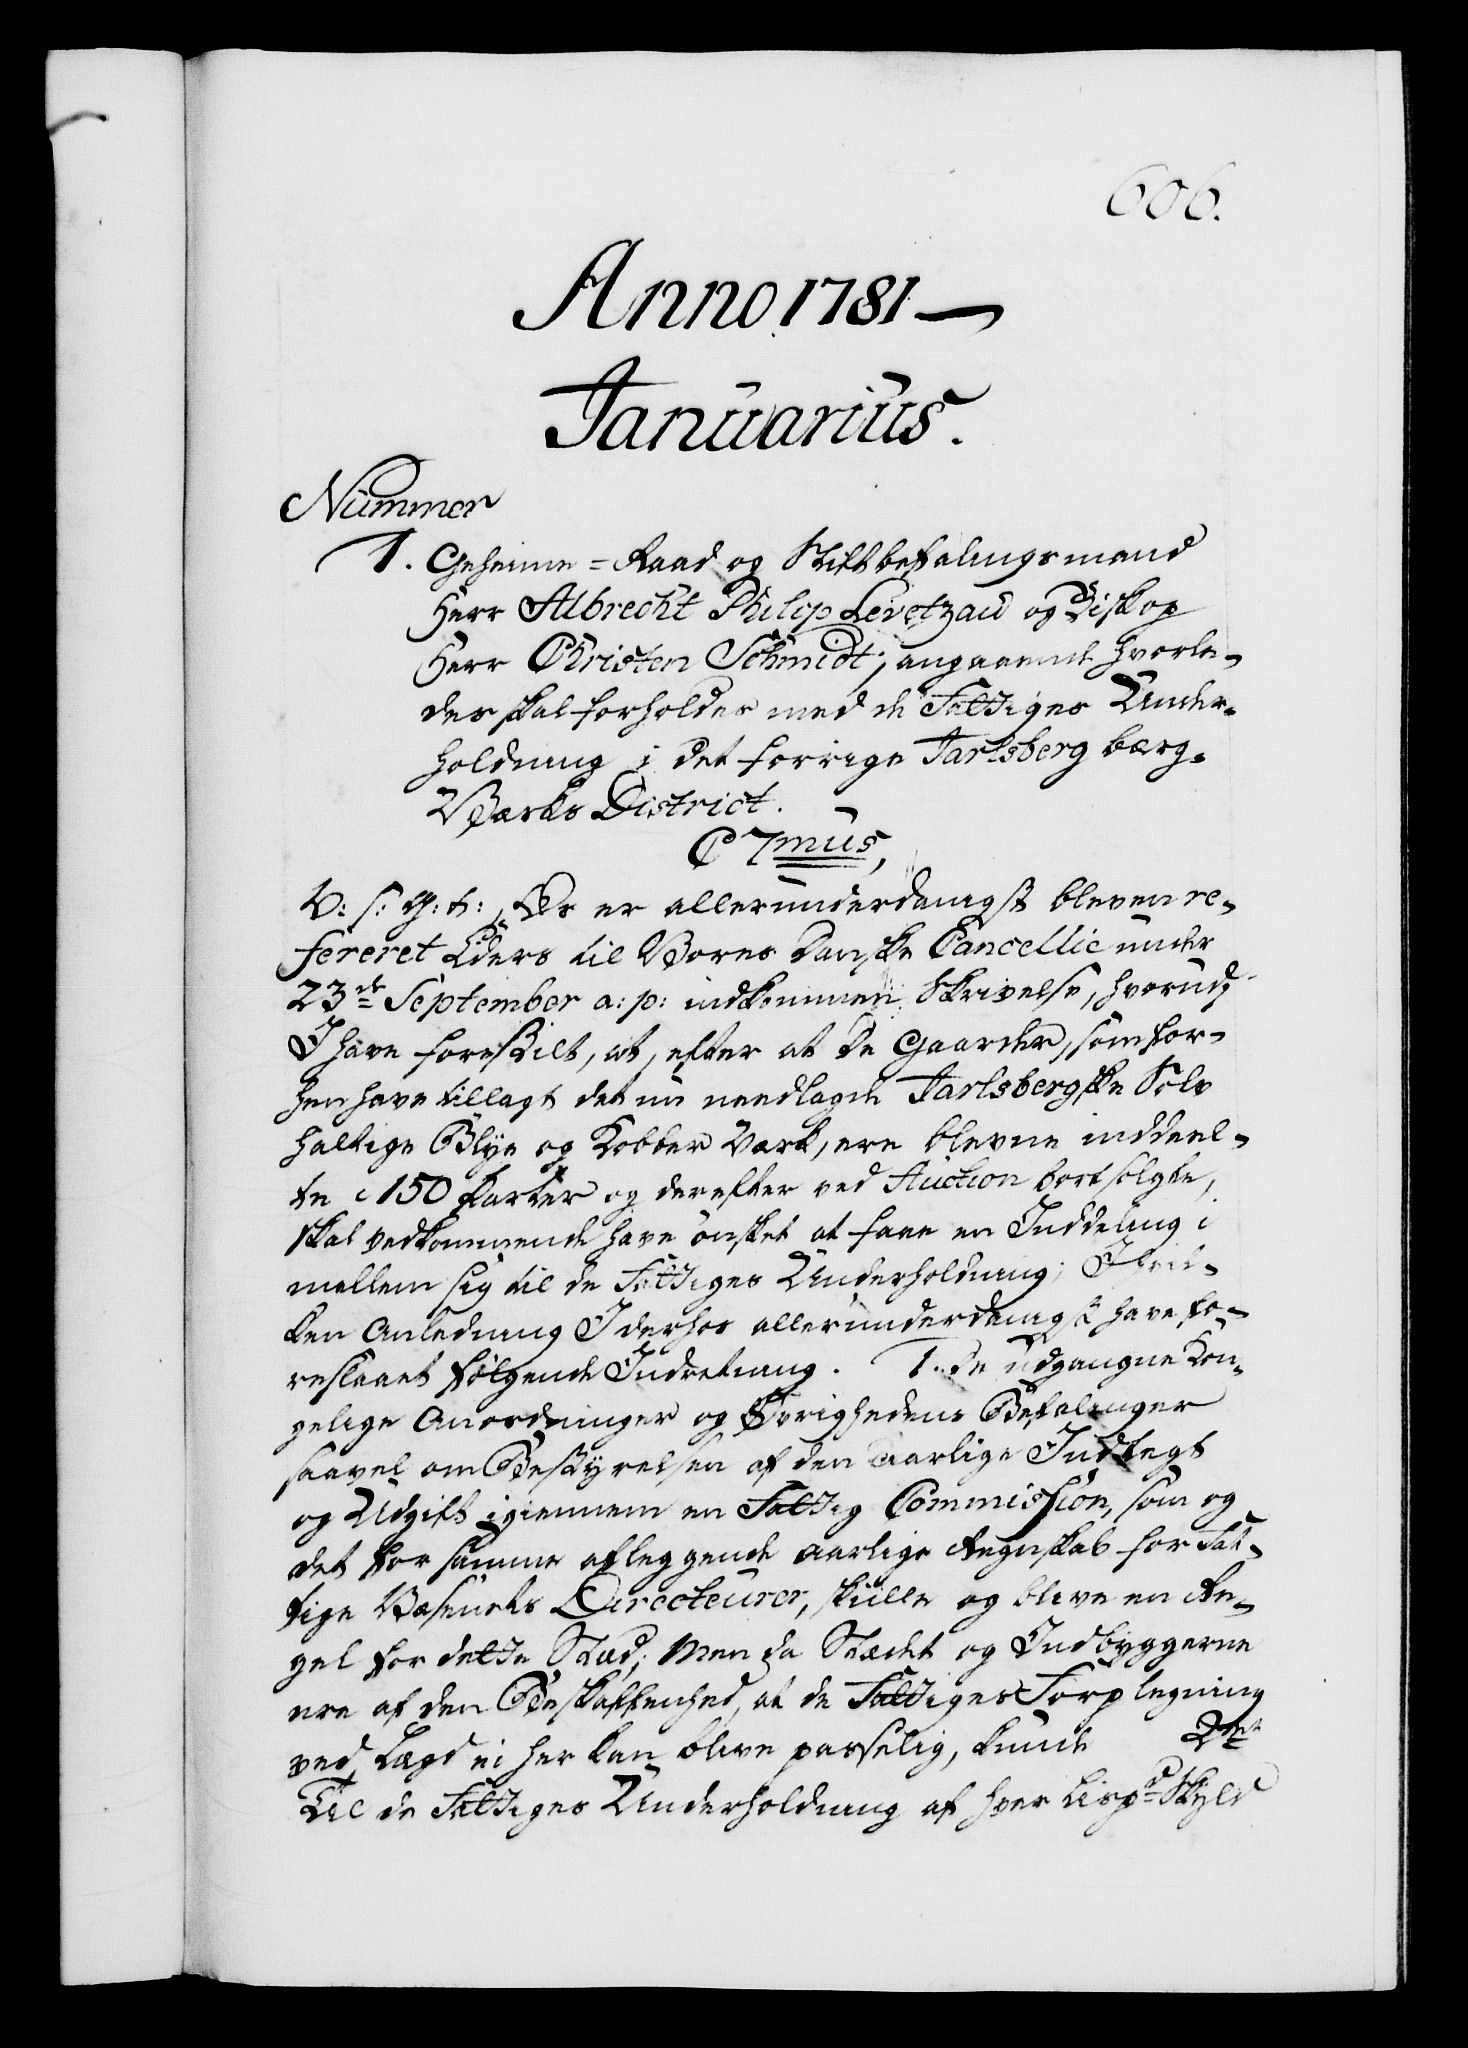 606.
Anno 1781
Januarius.
Nummer
1. Geheime=Raad og Stiftbefalingsmand
Herr Albrecht Philip Levetzau og Biskop
Herr Christen Schmidt; angaaende hvorle-
des skal forholdes med de Fattiges Under-
holdning i det forrige Jarlsberg bærg-
Værks District.
C 7mus,
V: s: G: t:, Os er allerunderdanigst bleven re-
fereret Eders til Vores Danske Cancellie under
23de September a: p: indkommen Skrivelse, hvorudj
I have forestilt, at, efter at de Gaarder, som for-
hen have tillagt det nu nedlagde Jarlsbergske Sølv
haltige Blye og Kobber Værk, ere blevne inddeel-
te i 150 Parter og derefter ved Auction bortsolgte,
skal vedkommende have ønsket at faae en Inddeling i
mellem sig til de Fattiges Underholdning; I hvil-
ken Anledning I derhos allerunderdanigst have fo-
reslaaet følgende Indretning. 1. De udgangne Kon-
gelige Anordninger og Øvrighedens Befalinger
saavel om Bestyrelsen af den aarlige Indtegt
og Udgift igiennem en Fattig Commission, som og
det for samme afleggende aarlige Regnskab for Fat-
tige Væsenets Directeurer, skulle og blive en Re-
gel for dette Stæd; Men da Stædet og Indbyggerne
ere af den Beskaffenhed, at de Fattiges Forplegning
ved Lægd ei her kan blive passelig, kunde 2det
Til de Fattiges Underholdning af hver Lispd Skyld